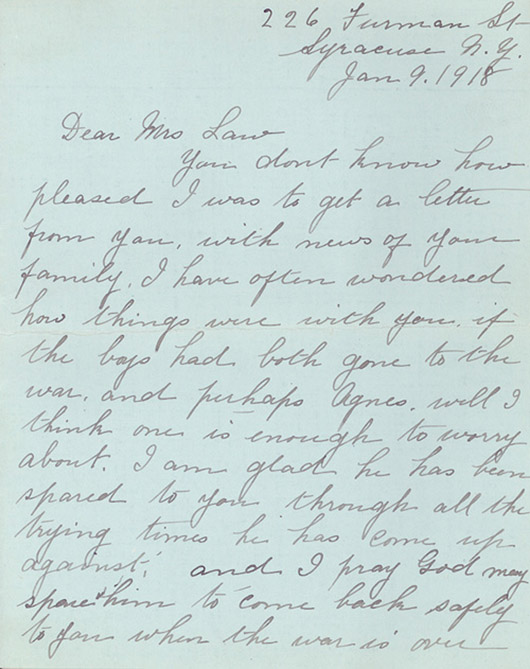 226 Furman St
Syracuse N.Y.
Jan 9. 1918
Dear Mrs Law
You dont know how
pleased I was to get a letter
from you, with news of your
family, I have often wondered
how things were with you, if
the boys had both gone to the
war, and perhaps Agnes. well I
think one is enough to worry
about. I am glad he has been
spared to you through all the
trying times he has come up
against, and I pray God may
spare him to come back safely
to you when the war is over